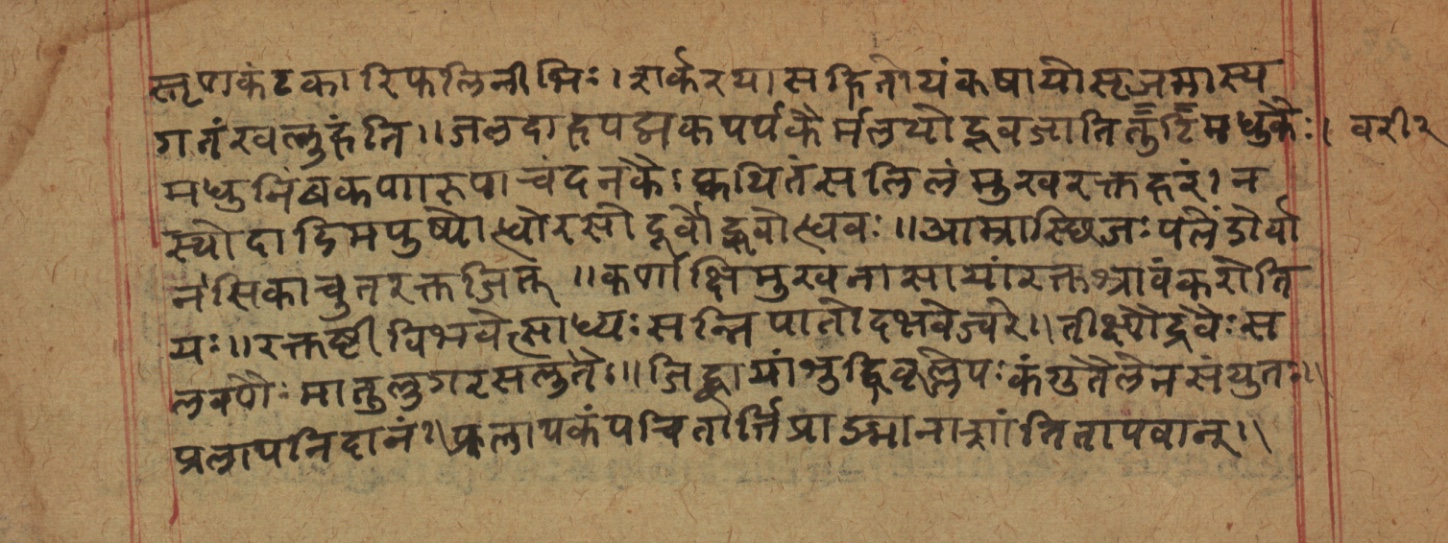 स्तृणकंटकारिफलिनीभिः। शर्करया सहितोयं कषायो सृजमास्य
गतं खलु हंति॥ जलदाहपद्मकपर्पकैर्मलयोद्भवजाति तुष्टिमधुकैः। वरीर
मधुनिंबकणारुपाचंदनकैः क्वथितं सलिलं मुखरक्तहरं। न
स्यो दाडिमपुष्योत्थो रसो दूर्वोद्भवोत्थवः॥ आम्रास्छिजः पलंडोर्वा
नासिकाचुतरक्तजित्॥ कर्णाक्षिमुखनासायां रक्तश्रावं करोति
यः॥ रक्तष्टीविभवेत्साध्यः सन्निपातोदभवेज्वरे॥ तीक्ष्णैर्द्रवैः स
लवणैः मातुलुगरसलुतैः॥ जिह्वायां शुद्धिवृल्लेपः कंगुतैलेन संयुतः॥
प्रलापनिदानं॥ प्रलापकंपचितोर्त्तिप्राज्ञानाशांतितापवान्॥